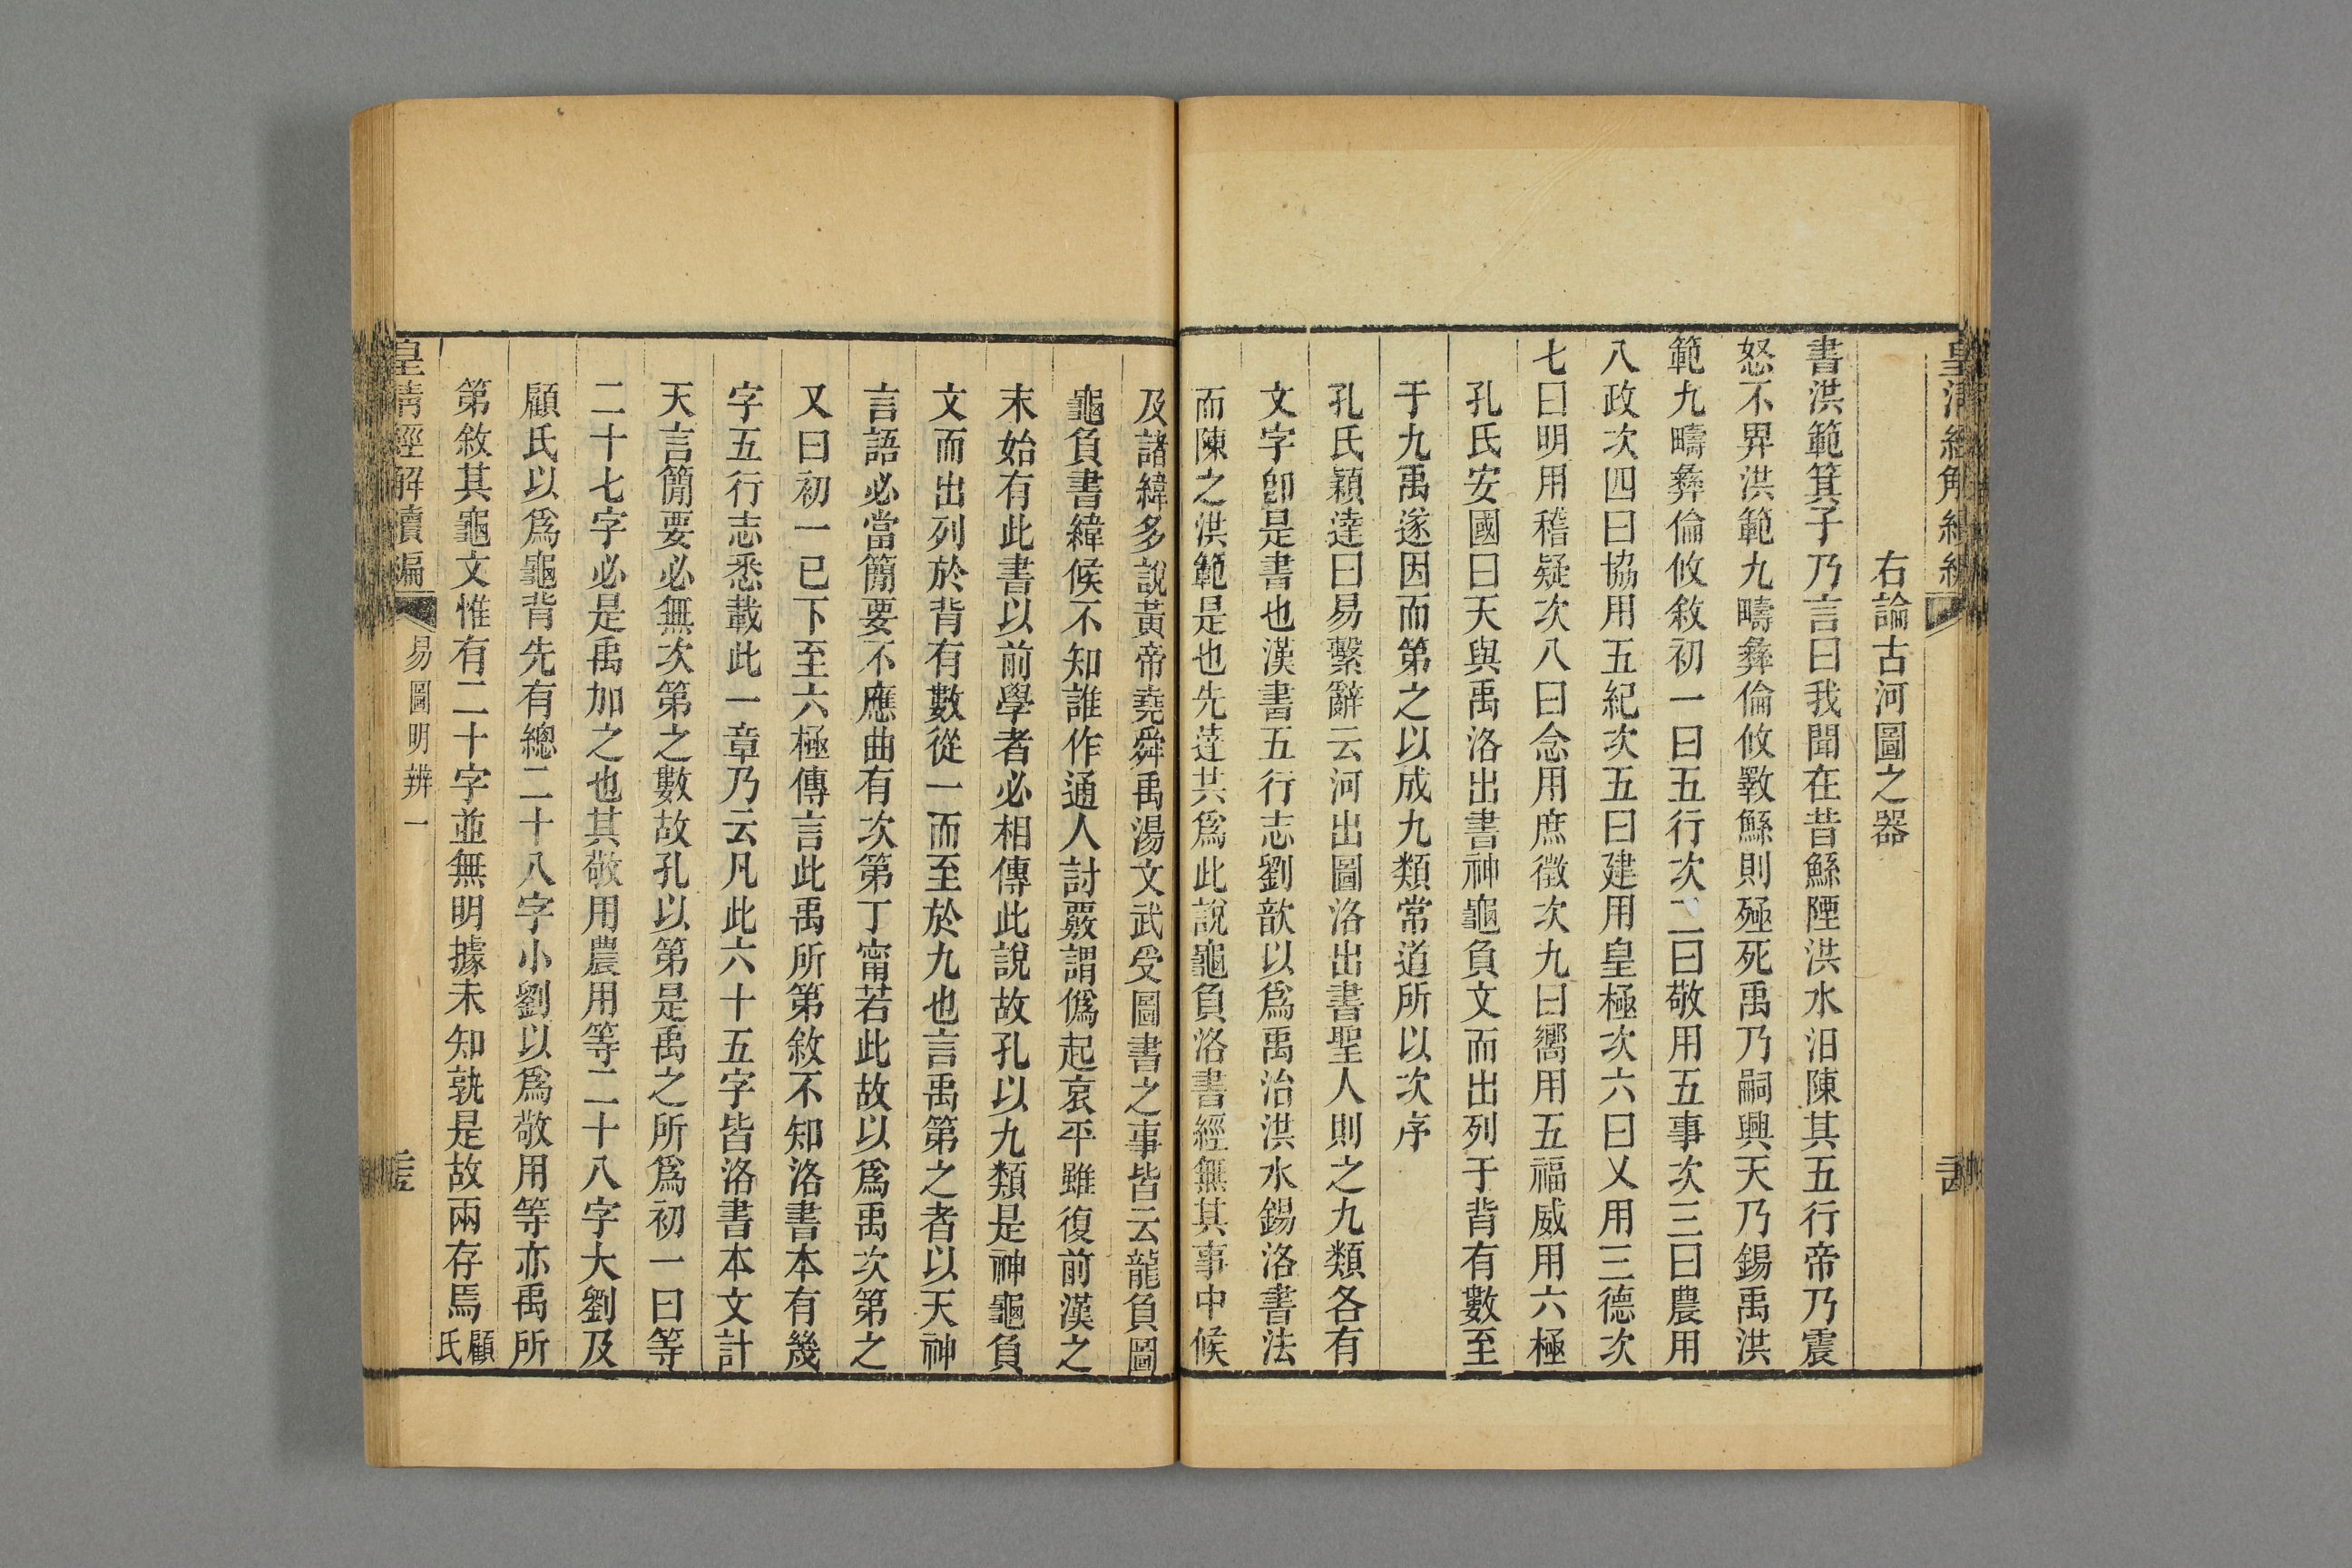 右論古河圖之器
書洪範箕子乃言曰我聞在昔鯀陻洪水汨陳其五行帝乃震
怒不畀洪範九疇彝倫攸斁鯀則殛死禹乃嗣興天乃錫禹洪
範九疇彝倫攸敘初一曰五行次二曰敬用五事次三曰農用
八政次四曰協用五紀次五曰建用皇極次六曰乂用三德次
七曰明用稽疑次八曰念用庶徵次九曰嚮用五福威用六極
孔氏安國曰天與禹洛出書神龜負文而出列于背有數至
于九禹遂因而第之以成九類常道所以次序
孔氏穎達曰易繫辭云河出圖洛出書聖人則之九類各有
文字卽是書也漢書五行志劉歆以爲禹治洪水錫洛書法
而陳之洪範是也先達共爲此說龜負洛書經無其事中候
及諸緯多說黃帝堯舜禹湯文武受圖書之事皆云龍負圖
龜負書緯候不知誰作通人討覈謂僞起哀平雖復前漢之
末始有此書以前學者必相傳此說故孔以九類是神龜負
文而出列於背有數從一而至於九也言禹第之者以天神
言語必當簡要不應曲有次第丁甯若此故以爲禹次第之
又曰初一已下至六極傳言此禹所第敘不知洛書本有幾
字五行志悉載此一章乃云凡此六十五字皆洛書本文計
天言簡要必無次第之數故孔以第是禹之所爲初一曰等
二十七字必是禹加之也其敬用農用等二十八字大劉及
顧氏以爲龜背先有總二十八字小劉以爲敬用等亦禹所
第敘其龜文惟有二十字並無明據未知孰是故兩存焉顧氏
皇清經解續編
易圖明辨一